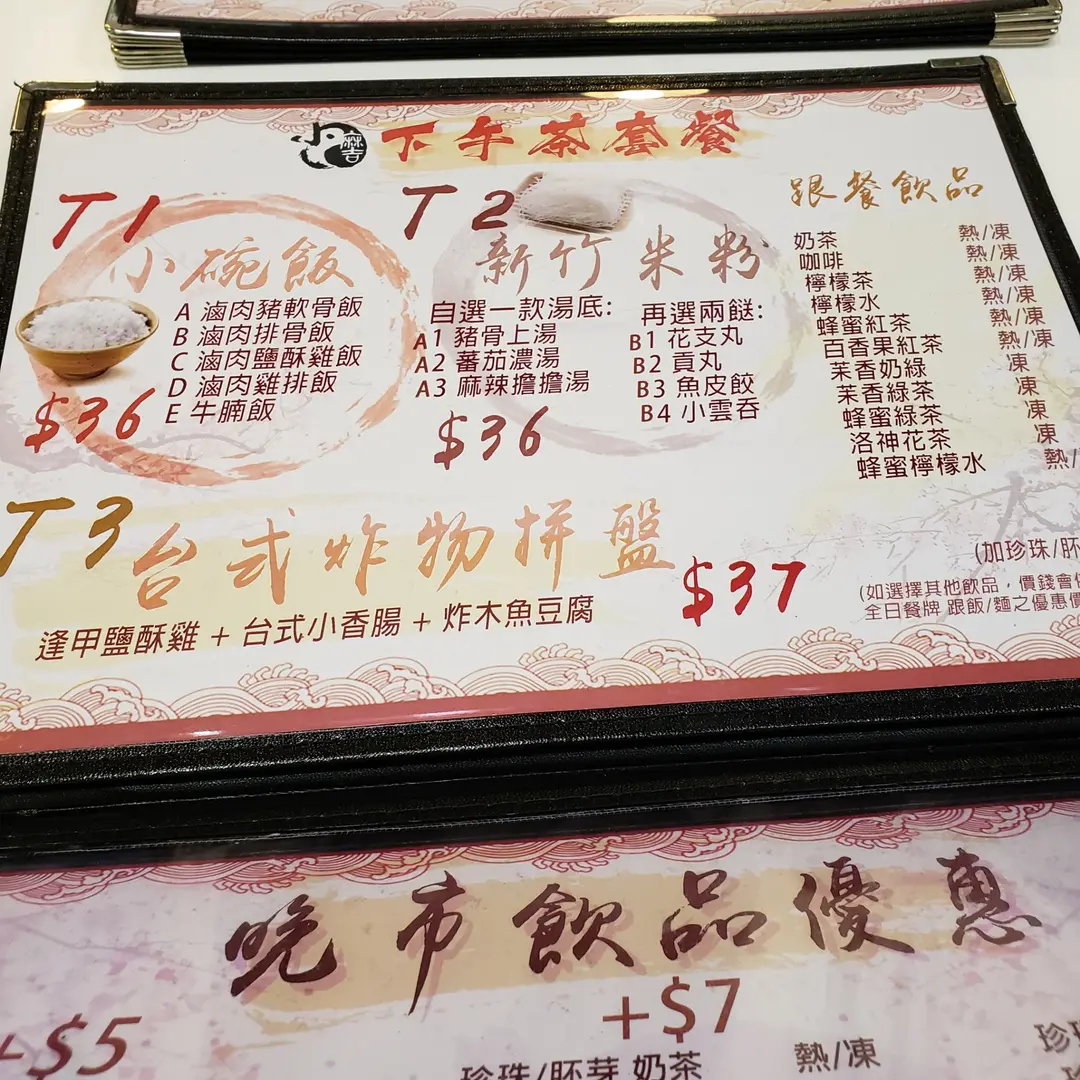 麻吉
下午茶套餐
T1
小碗飯
A 滷肉豬軟骨飯
B 滷肉排骨飯
C 滷肉鹽酥雞飯
D 滷肉雞排飯
E 牛腩飯
$36
T2
新竹米粉
自選一款湯底:
A1 豬骨上湯
A2 蕃茄濃湯
A3 麻辣擔擔湯
再選兩餸:
B1 花支丸
B2 貢丸
B3 魚皮餃
B4 小雲吞
$36
跟餐飲品
奶茶 熱/凍
咖啡 熱/凍
檸檬茶 熱/凍
檸檬水 熱/凍
蜂蜜紅茶 熱/凍
百香果紅茶 熱/凍
茉香奶綠 凍
茉香綠茶 凍
蜂蜜綠茶 凍
洛神花茶 凍
蜂蜜檸檬水 熱/
(加珍珠/胚
(如選擇其他飲品，價錢會
全日餐牌 跟飯/麵之優惠價
T3
台式炸物拼盤
$37
逢甲鹽酥雞 + 台式小香腸 + 炸木魚豆腐
晚市飲品優惠
+$5
+$7
珍珠/胚芽 奶茶 熱/凍